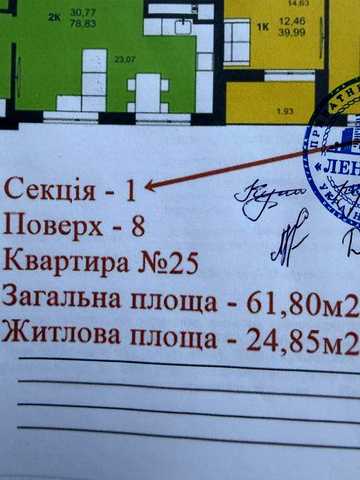 14,63
2К 30,77
78,83
1К 12,46
39,99
23,07
1.93
ЛЕН
Секція - 1
Поверх - 8
Квартира №25
Загальна площа - 61,80м2
Житлова площа - 24,85м2